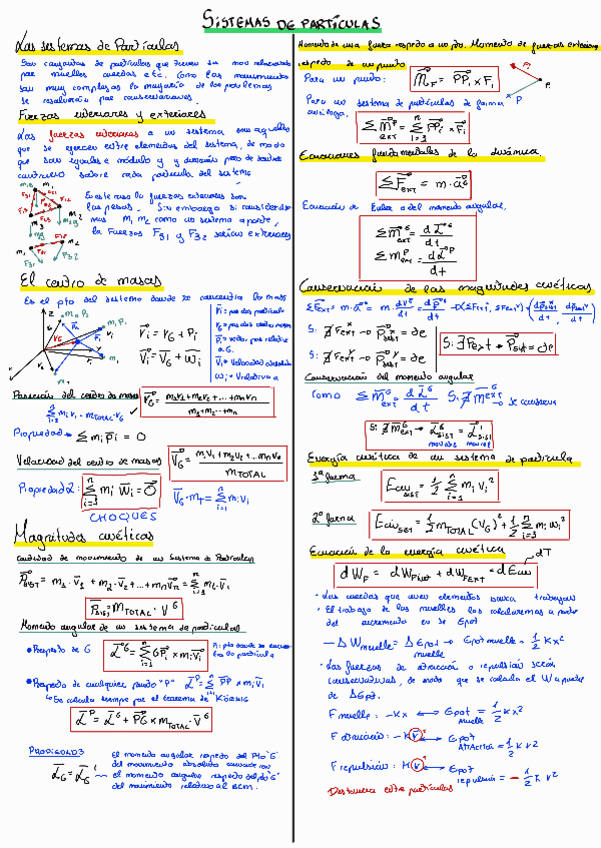 SISTEMAS DE PARTÍCULAS
Los sistemas de Partículas
Son conjuntos de partículas que tienen su mov relacionado
por muelles cuerdas etc. Como los movimientos
son muy complejos la mayoría de los problemas
se resolverán por conservaciones.
Fuerzas interiores y exteriores
Las fuerzas interiores a un sistema son aquellas
que se ejercen entre elementos del sistema, de modo
que son iguales en módulo y
sobre cada partícula del sistema
En este caso las fuerzas exteriores son
los pesos. Sin embargo si consideramos
m₁ m₂ como un sistema aparte,
las fuerzas F₃₁ y F₃₂ serían exteriores
El centro de masas
Es el pto del sistema donde se concentra la masa
r̄ᵢ = r_G + ρ̄ᵢ
v̄ᵢ = v̄_G + w̄ᵢ
Posición del centro de masas
r̄_G = (m₁r₁ + m₂r₂ + ... + mₙrₙ) / (m₁ + m₂ ... + mₙ)
Propiedad Σ mᵢ ρ̄ᵢ = 0
Velocidad del centro de masas
v̄_G = (m₁v₁ + m₂v₂ + ... mₙvₙ) / m TOTAL
Propiedad 2: Σ mᵢ w̄ᵢ = 0̄
V̄_G · m_T = Σ mᵢ vᵢ
CHOQUES
Magnitudes cinéticas
Cantidad de movimiento de un Sistema de Partículas
P̄sist = m₁ · v̄₁ + m₂ · v̄₂ + ... + mₙ v̄ₙ = Σ mᵢ · v̄ᵢ
P̄sist = m TOTAL · V̄ᴳ
Momento angular de un sistema de partículas
• Respecto de G
L̄ᴳ = Σ GPᵢ × mᵢ v̄ᵢ
• Respecto de cualquier punto "P" L̄ᴾ = Σ PPᵢ × mᵢ vᵢ
↳ Se calcula siempre por el teorema de König
L̄ᴾ = L̄ᴳ + PG × m TOTAL · v̄ᴳ
PROPIEDAD 3
L̄_G = L̄_G'
El momento angular respecto del Pto "G"
del movimiento absoluto
el momento angular respecto del pto "G"
del movimiento relativo al SCM.
Momento de una fuerza respecto a un pto. Momento de fuerzas exteriores
respecto de un punto
Para un punto: M̄_F = PPᵢ × Fᵢ
Para un sistema de partículas de forma
análoga, Σ M̄ᴾ ext = Σ PPᵢ × F̄ᵢ
Ecuaciones fundamentales de la dinámica.
Σ F̄ext = m · āᴳ
Ecuación de Euler o del momento angular.
Σ m̄ᴳ ext = dL̄ᴳ / dt
Σ mᴾ ext = dL̄ᴾ / dt
Conservación de las magnitudes cinéticas
Si ∄ Fext → P̄sist = cte
Conservación del momento angular
Como Σ M̄ᴳ ext = dL̄ᴳ / dt Si ∄ m̄ᴳ ext → se conserva
Energía cinética de un sistema de partícula
1ª forma Ecin sist = ½ Σ mᵢ vᵢ²
2ª forma Ecin sist = ½ m TOTAL (V_G)² + ½ Σ mᵢ wᵢ²
Ecuación de la energía cinética
dT
dW_F = dW Fint + dW FEXT = dEcin
• Las cuerdas que unen elementos nunca trabajan
• El trabajo de los muelles los calcularemos a partir
del incremento en su Epot
- ΔW muelle = ΔEpot muelle → Epot muelle = ½ Kx²
• Las fuerzas de atracción o repulsión serán
conservativas, de modo que se calcula el W a partir
de ΔEpot.
F muelle: -Kx ⟷ Epot muelle = ½ Kx²
F atracción: -Kr ⟷ Epot Atracción = ½ Kr²
F repulsión: Kr ⟷ Epot repulsión = - ½ Kr²
Distancia entre partículas